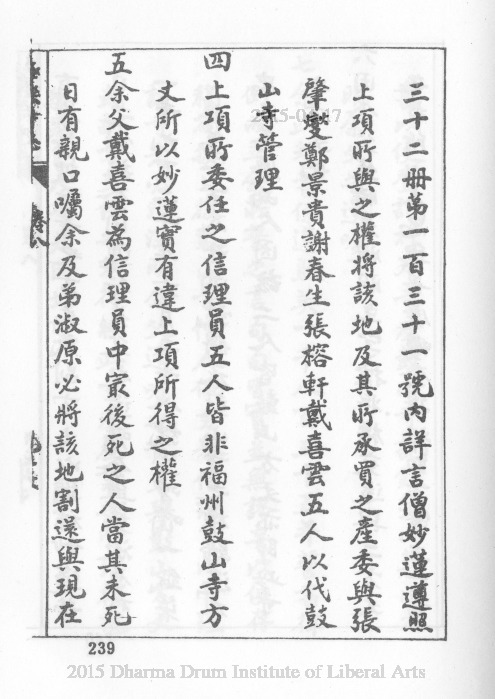 三十二冊第一百三十一號內詳言僧妙蓮遵照
上項所與之權將該地及其所承買之產委與張
肇燮鄭景貴謝春生張榕軒戴喜雲五人以代鼓
山寺管理
四上項所委任之信理員五人皆非福州鼓山寺方
丈所以妙蓮實有違上項所得之權
五余父戴喜雲為信理員中最後死之人當其未死
日有親口囑余及弟淑原必將該地割還與現在
239
2015 Dharma Drum Institute of Liberal Arts